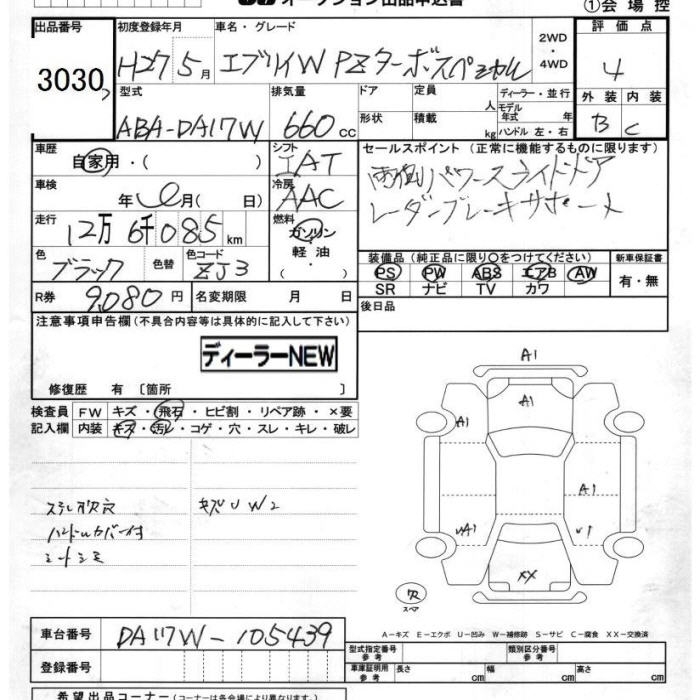 オークション出品申込書
①会場控
出品番号
3030
初度登録年月
H27 5月
車名・グレード
エブリイW PZターボスペシャル
2WD
・
4WD
評価点
4
外装 内装
B C
型式
ABA-DA17W
排気量
660 cc
ドア
形状
定員
人
積載
kg
ディーラー・並行
モデル
年式 年
ハンドル 左・右
車歴
自家用・( )
シフト
IAT
車検
年 月( 日)
冷房
AAC
走行
12万6千085km
燃料
ガソリン
・
軽油
色
ブラック
色替
色コード
ZJ3
R券
9,080円
名変期限 月 日
セールスポイント (正常に機能するものに限ります)
両側パワースライドドア
レーダーブレーキサポート
装備品(純正品に限り〇をつけてください)
PS PW ABS エアB AW
SR ナビ TV カワ
新車保証書
有・無
後日品
注意事項申告欄(不具合内容等は具体的に記入して下さい)
ディーラーNEW
修復歴 有 〔箇所 〕
検査員
記入欄
FW キズ・飛石・ヒビ割・リペア跡・×要
内装 キズ・汚レ・コゲ・穴・スレ・キレ・破レ
ハンドルカバー付
シートシミ
キズUW2
A1
A1
A1
A1
UA1
U1
XX
スペア
A-キズ E-エクボ U-凹み W-補修跡 S-サビ C-腐食 XX-交換済
車台番号
DA17W-105439
登録番号
型式指定番号
参考
類別区分番号
参考
車庫証明用
参考
長さ cm
幅 cm
高さ cm
希望出品コーナー(コーナーは各会場により異なります)